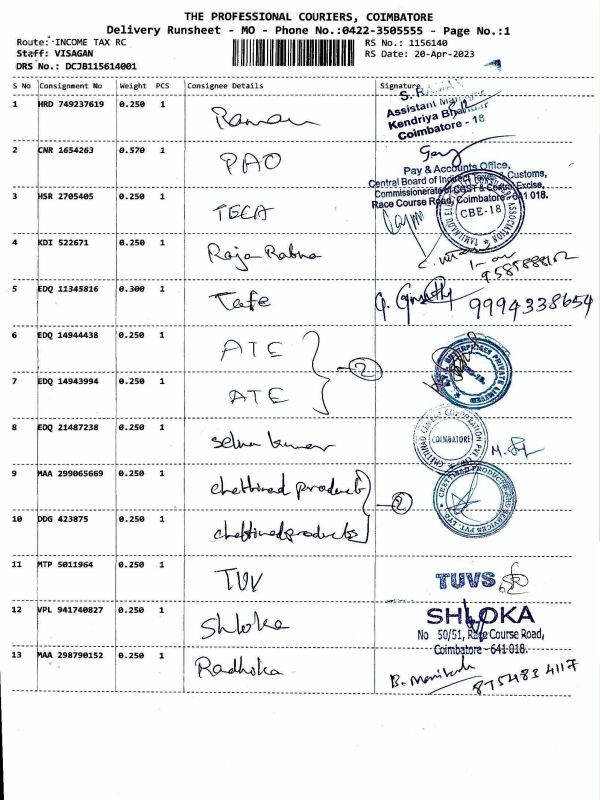 THE PROFESSIONAL COURIERS, COIMBATORE
Delivery Runsheet - MO - Phone No.:0422-3505555 - Page No.:1
Route: INCOME TAX RC
RS No.: 1156140
Staff: VISAGAN
RS Date: 20-Apr-2023
DRS No.: DCJB115614001
S No Consignment No Weight PCS Consignee Details Signature
1 HRD 749237619 0.250 1 Raman
Assistant Manager
Kendriya Bhandar
Coimbatore - 18
2 CNR 1654263 0.570 1 PAO
Pay & Accounts Office,
Central Board of Indirect Taxes & Customs,
Commissionerate of CGST & Central Excise,
Race Course Road, Coimbatore-641 018.
3 HSR 2705405 0.250 1 TECA
CBE-18
4 KDI 522671 0.250 1
5 EDQ 11345816 0.300 1 Tafe 9994338654
6 EDQ 14944438 0.250 1 ATE
2
7 EDQ 14943994 0.250 1 ATE
8 EDQ 21487238 0.250 1 selva kumar
COIMBATORE
9 MAA 299065669 0.250 1 chettinad product
2
10 DDG 423875 0.250 1 chettinad products
11 MTP 5011964 0.250 1 TUV TUVS
12 VPL 941740827 0.250 1 Shloka
SHLOKA
No 50/51, Race Course Road,
Coimbatore - 641 018.
13 MAA 298790152 0.250 1 Radhika
8754834117